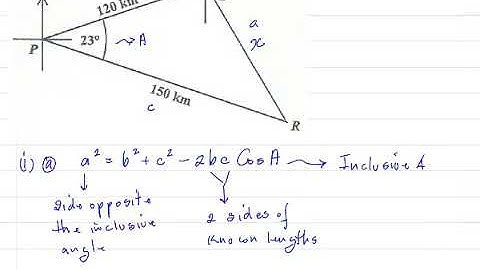 120 km
a
P
23°
→ A
x
150 km
c
R
(i) ⓐ a² = b² + c² - 2bc Cos A → Inclusive A
side opposite
the inclusive
angle
2 sides of
known lengths